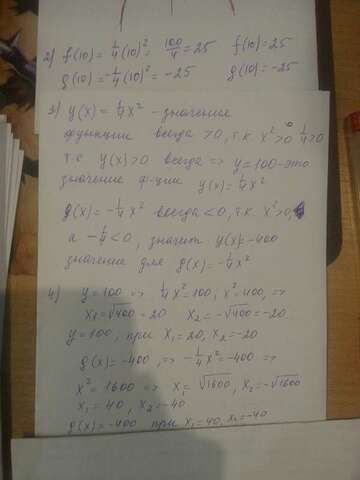 2) f(10) = 1/4(10)² = 100/4 = 25 f(10) = 25
g(10) = -1/4(10)² = -25 g(10) = -25
3) y(x) = 1/4x² - значение
функции всегда >0, т.к x²>0 1/4>0
т.е y(x)>0 всегда => y=100 - это
значение ф-ции y(x) = 1/4x²
g(x) = -1/4x² всегда <0, т.к. x²>0,
а -1/4<0, значит y(x)=-400
значение для g(x) = -1/4x²
4) y=100 => 1/4x²=100; x²=400, =>
x₁=√400=20 x₂=-√400=-20
y=100, при x₁=20; x₂=-20
g(x)=-400, => -1/4x²=-400 =>
x²=1600 => x₁=√1600, x₂=-√1600
x₁=40, x₂=-40
g(x)=-400 при x₁=40, x₂=-40